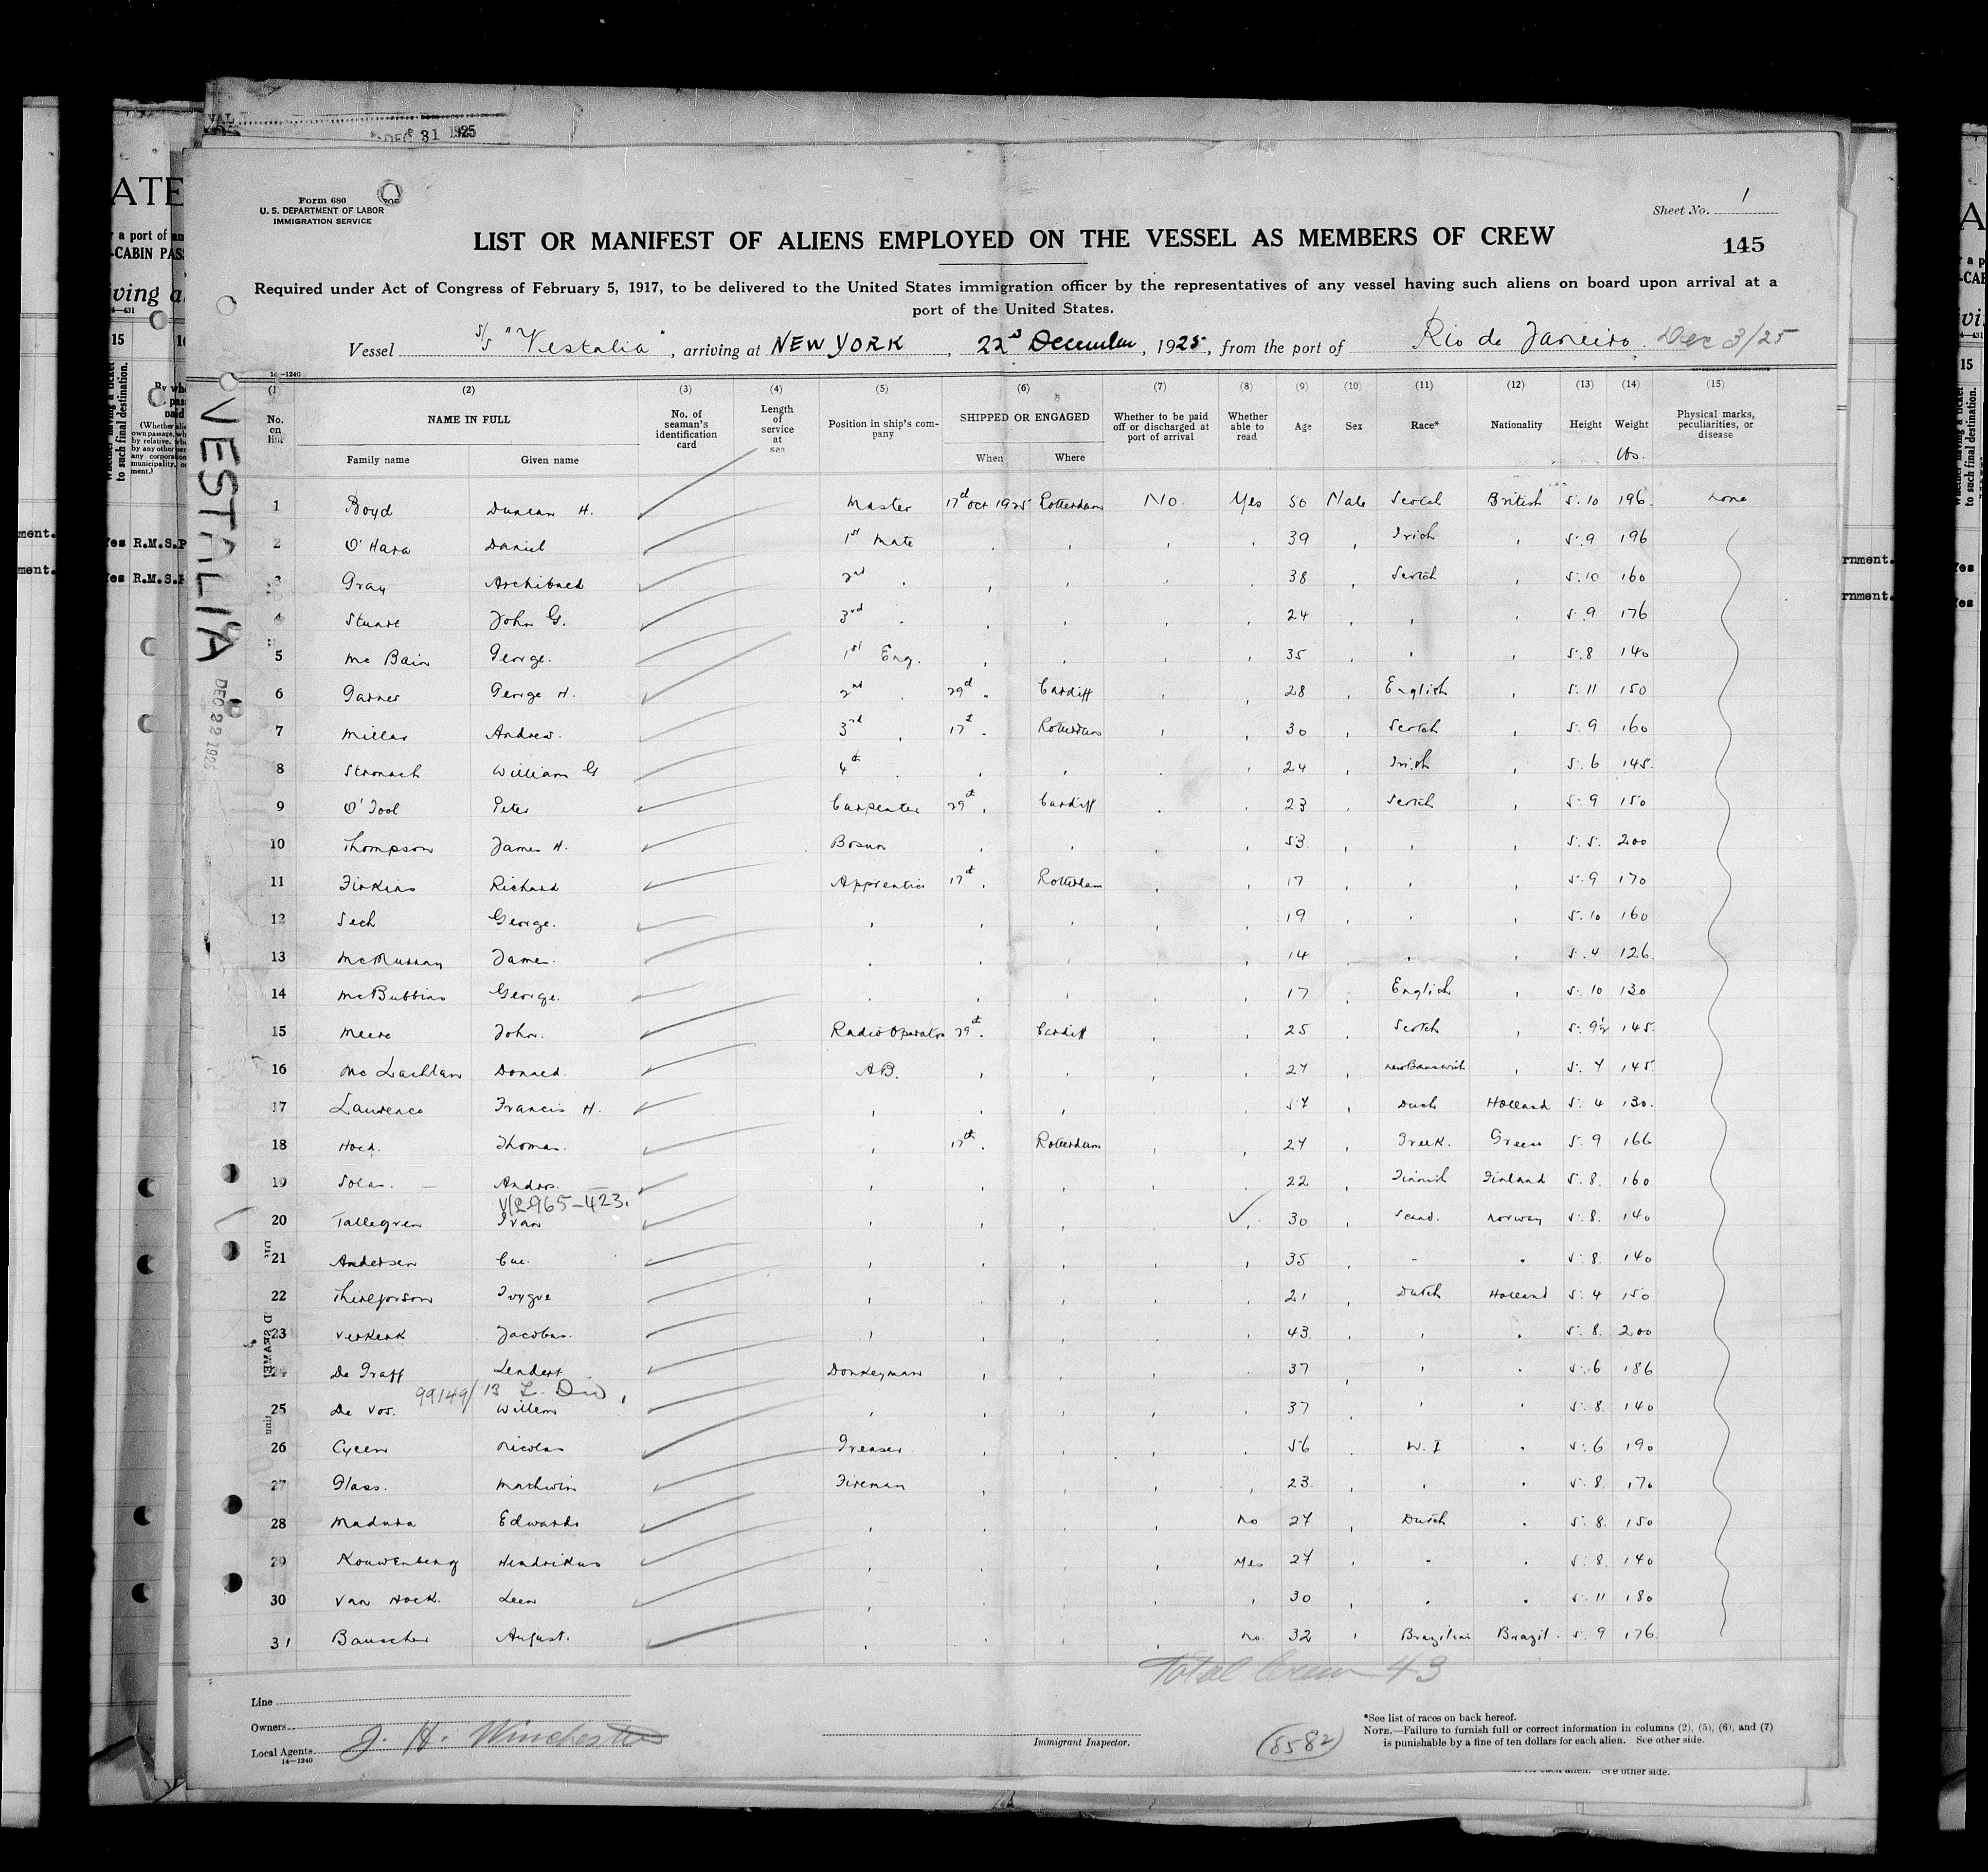 DEC 31 1925
Form 680
U. S. DEPARTMENT OF LABOR
IMMIGRATION SERVICE
Sheet No. 1
LIST OR MANIFEST OF ALIENS EMPLOYED ON THE VESSEL AS MEMBERS OF CREW
145
Required under Act of Congress of February 5, 1917, to be delivered to the United States immigration officer by the representatives of any vessel having such aliens on board upon arrival at a
port of the United States.
Vessel S/S "Vestalia", arriving at NEW YORK, 22nd December, 1925, from the port of Rio de Janeiro. Dec 3/25
14—1240
(1) (2) (3) (4) (5) (6) (7) (8) (9) (10) (11) (12) (13) (14) (15)
No. on list NAME IN FULL No. of seaman's identification card Length of service at sea Position in ship's company SHIPPED OR ENGAGED Whether to be paid off or discharged at port of arrival Whether able to read Age Sex Race* Nationality Height Weight Physical marks, peculiarities, or disease
Family name Given name When Where lbs.
VESTALIA
DEC 22 1925
1 Boyd Duncan H. Master 17th Oct 1925 Rotterdam No. Yes 50 Male Scotch British 5.10 196 none
2 O'Hara Daniel 1st Mate 39 Irish 5.9 196
3 Gray Archibald 2nd 38 Scotch 5.10 160
4 Stuart John G. 3rd 24 5.9 176
5 Mc Bain George. 1st Eng. 35 5.8 140
6 Garner George H. 2nd 29th Cardiff 28 English 5.11 150
7 Millar Andrew. 3rd 17th Rotterdam 30 Scotch 5.9 160
8 Stronach William G 4th 24 Irish 5.6 145
9 O'Tool Peter Carpenter 29th Cardiff 23 Scotch 5.9 150
10 Thompson James H. Bosun 53 5.5. 200
11 Firkins Richard Apprentice 17th Rotterdam 17 5.9 170
12 Sech George. 19 5.10 160
13 McMurray James. 14 5.4 126
14 McBubbins George. 17 English 5.10 130
15 Meere John. Radio Operator 29th Cardiff 25 Scotch 5.9½ 145
16 Mc Lachlan Donald. A.B. 27 New Brunswick 5.7 145
17 Laurence Francis H. 57 Duch Holland 5.4 130.
18 Thomas. 17th Rotterdam 27 Greek. Greece 5.9 166
19 Solas. Anders. 22 Finnish Finland 5.8. 160
V/2965-423.
20 Tallegren Ivan 30 Scand. Norway 5.8. 140
21 Andersen 35 5.8. 140
22 Trygve 21 Dutch Holland 5.4 150
23 Verkerk Jacobus. 43 5.8. 200
24 De Graff Lendert Donkeyman 37 5.6 186
99149/13
25 De Vos. Willem 37 5.8. 140
26 Nicolas Greaser. 56 W.I 5.6 190
27 Glass. Fireman 23 5.8. 170
28 Madura Edwards no 27 Dutch 5.8. 150
29 Kouwenberg Hendrikus Yes 27 5.8. 140
30 Van Hoek. Leen 30 5.11 180
31 Bauscher August. no. 32 Brazilian Brazil. 5.9 176
Total Crew 43
Line
Owners
Local Agents J. H. Winchester
14—1240
Immigrant Inspector.
(8582)
*See list of races on back hereof.
NOTE.—Failure to furnish full or correct information in columns (2), (5), (6), and (7)
is punishable by a fine of ten dollars for each alien. See other side.